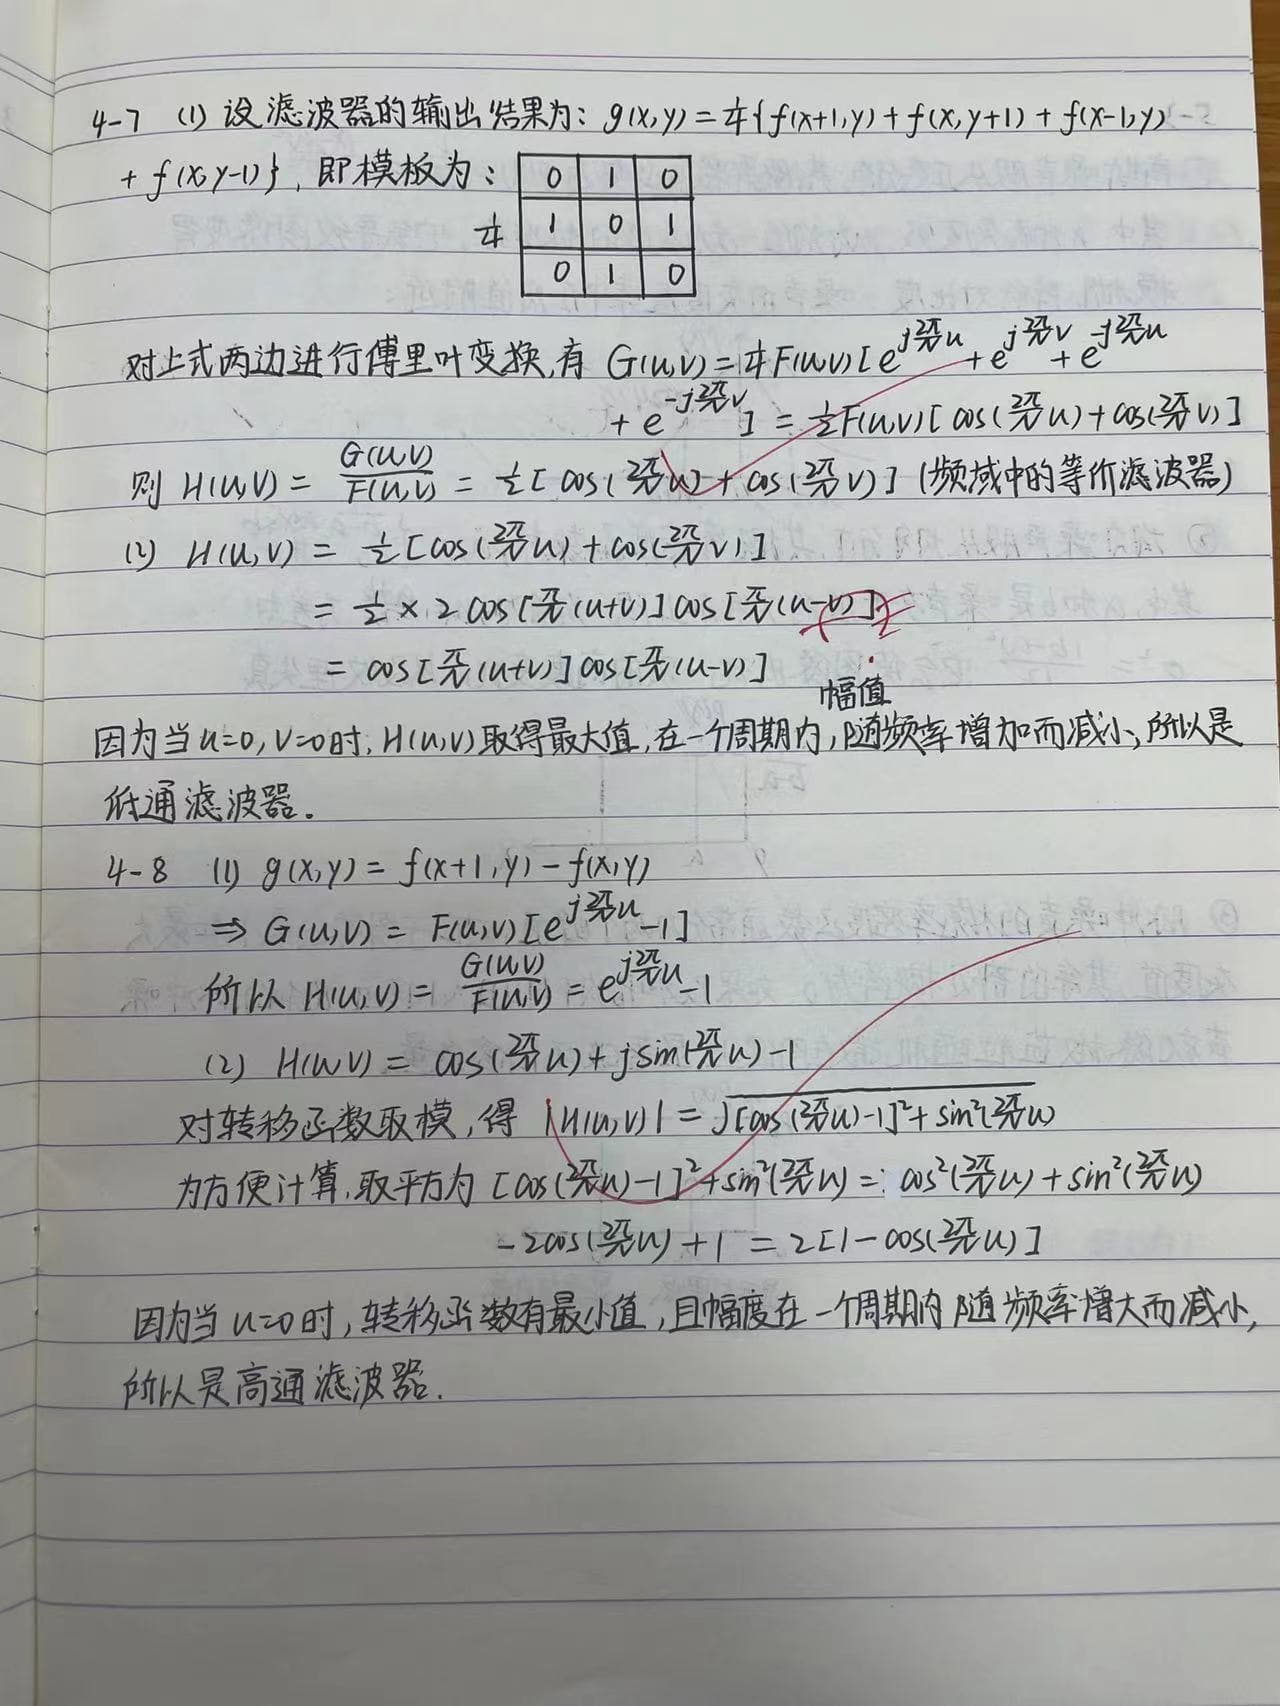 4-7 (1) 设滤波器的输出结果为: g(x,y) = 1/4{f(x+1,y) + f(x,y+1) + f(x-1,y)
+ f(x,y-1)}, 即模板为:
0 1 0
1/4 1 0 1
0 1 0
对上式两边进行傅里叶变换,有 G(u,v) = 1/4 F(u,v) [e^{j 2π/N u} + e^{j 2π/N v} + e^{-j 2π/N u}
+ e^{-j 2π/N v}] = 1/2 F(u,v) [cos(2π/N u) + cos(2π/N v)]
则 H(u,v) = G(u,v)/F(u,v) = 1/2 [cos(2π/N u) + cos(2π/N v)] (频域中的等价滤波器)
(2) H(u,v) = 1/2 [cos(2π/N u) + cos(2π/N v)]
= 1/2 × 2 cos[π/N (u+v)] cos[π/N (u-v)]
= cos[π/N (u+v)] cos[π/N (u-v)]
幅值
因为当 u=0, v=0时, H(u,v) 取得最大值, 在一个周期内, 随频率增加而减小, 所以是
低通滤波器.
4-8 (1) g(x,y) = f(x+1,y) - f(x,y)
⇒ G(u,v) = F(u,v) [e^{j 2π/N u} - 1]
所以 H(u,v) = G(u,v)/F(u,v) = e^{j 2π/N u} - 1
(2) H(u,v) = cos(2π/N u) + j sin(2π/N u) - 1
对转移函数取模, 得 |H(u,v)| = √([cos(2π/N u) - 1]² + sin²(2π/N u))
为方便计算,取平方为 [cos(2π/N u) - 1]² + sin²(2π/N u) = cos²(2π/N u) + sin²(2π/N u)
- 2cos(2π/N u) + 1 = 2[1 - cos(2π/N u)]
因为当 u=0时, 转移函数有最小值, 且幅度在一个周期内随频率增大而减小,
所以是高通滤波器.